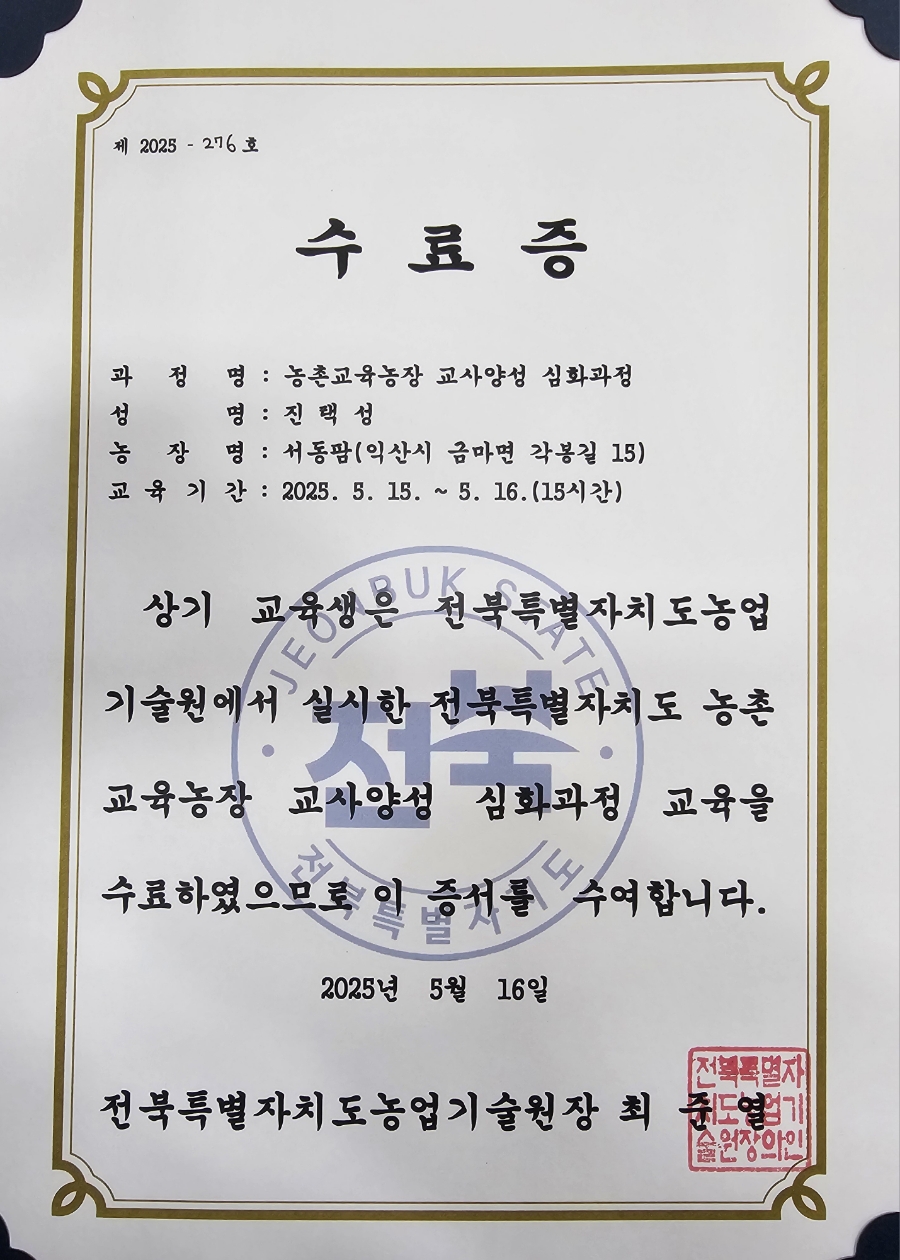 제 2025 - 276 호
수 료 증
과 정 명 : 농촌교육농장 교사양성 심화과정
성 명 : 진 택 성
농 장 명 : 서동팜(익산시 금마면 각봉길 15)
교 육 기 간 : 2025. 5. 15. ~ 5. 16.(15시간)
JEONBUK STATE
상기 교육생은 전북특별자치도농업
기술원에서 실시한 전북특별자치도 농촌
전북
교육농장 교사양성 심화과정 교육을
수료하였으므로 이 증서를 수여합니다.
전북특별자치도
2025년 5월 16일
전북특별자치도농업기술원장 최 준 열
전북특별자
치도농업기
술원장의인